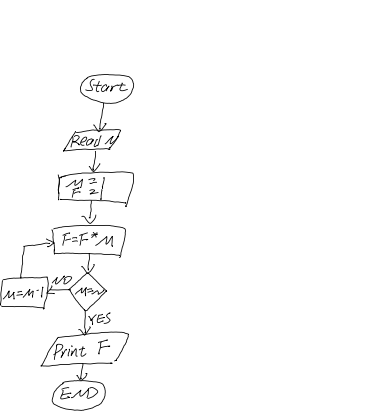 Start
Read M
M =
F = 1
F=F*M
NO
M=M-1
YES
Print F
END